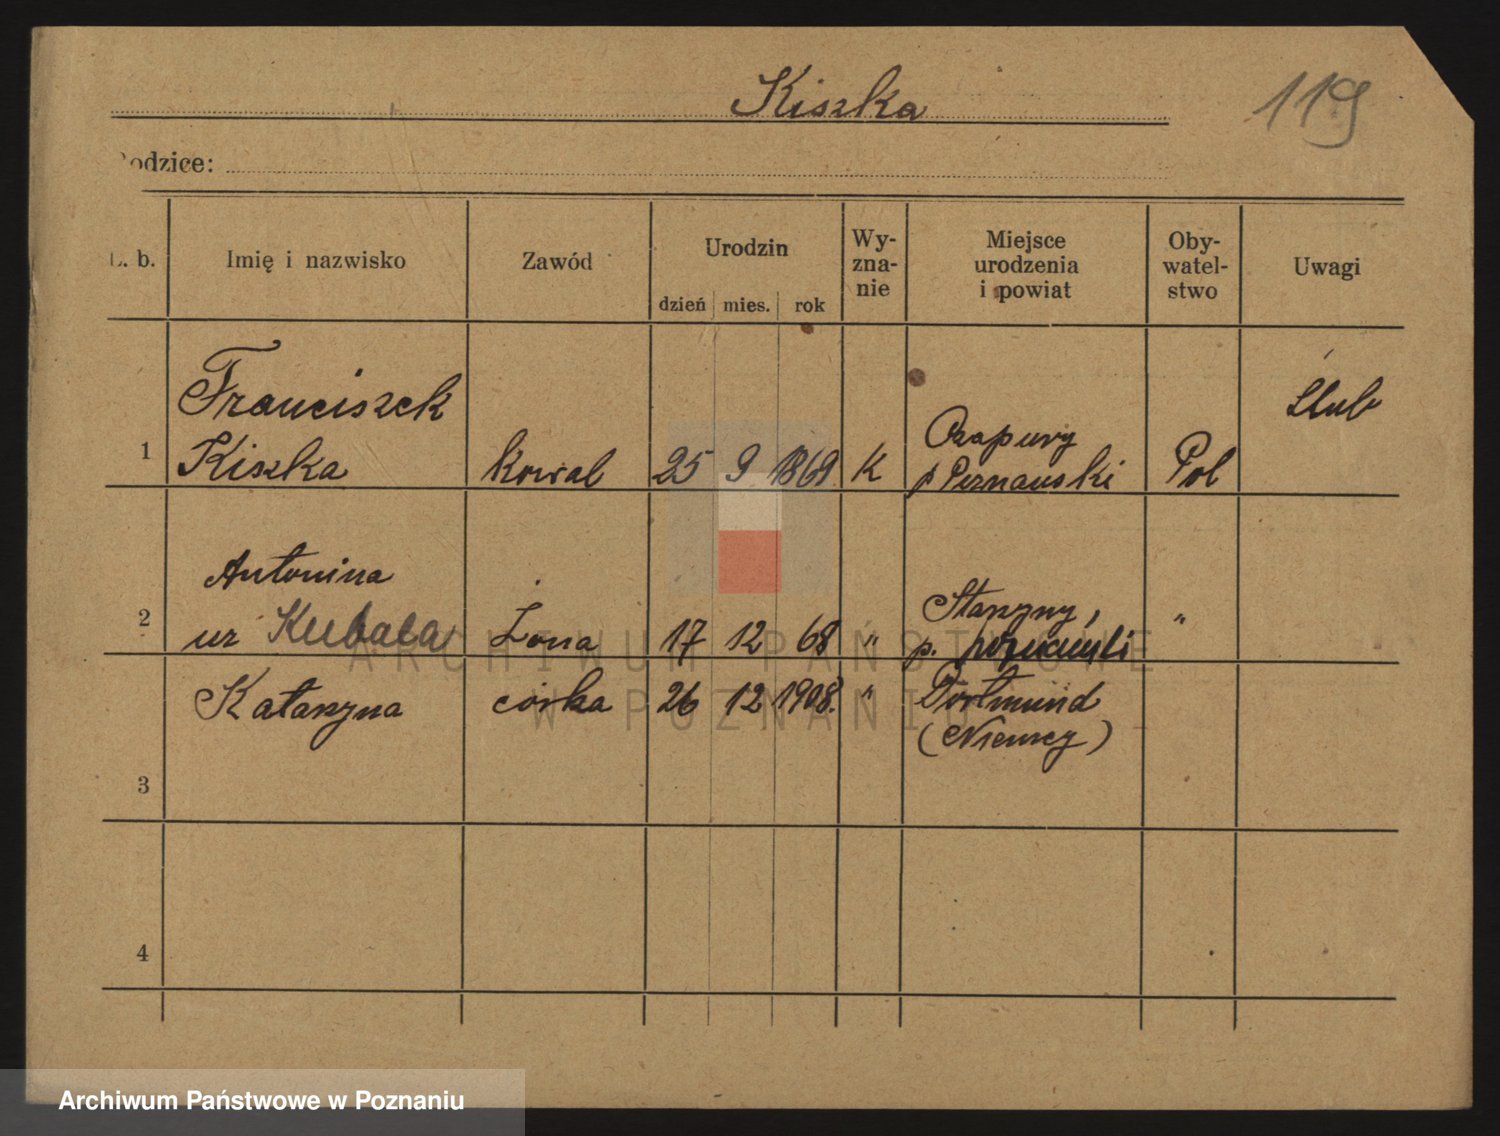 Kiszka
119
Rodzice:
L. b.
Imię i nazwisko
Zawód
Urodzin
dzień mies. rok
Wy-
zna-
nie
Miejsce
urodzenia
i powiat
Oby-
watel-
stwo
Uwagi
1
Franciszek
Kiszka
kowal
25 9 1869
K
Czapury
p Poznański
Pol
Ślub
2
Antonina
ur Kubala
Żona
17 12 68
"
p. poznański
"
3
Katarzyna
córka
26 12 1908.
"
Dortmund
(Niemcy)
4
ARCHIWUM PAŃSTWOWE
W POZNANIU
Archiwum Państwowe w Poznaniu